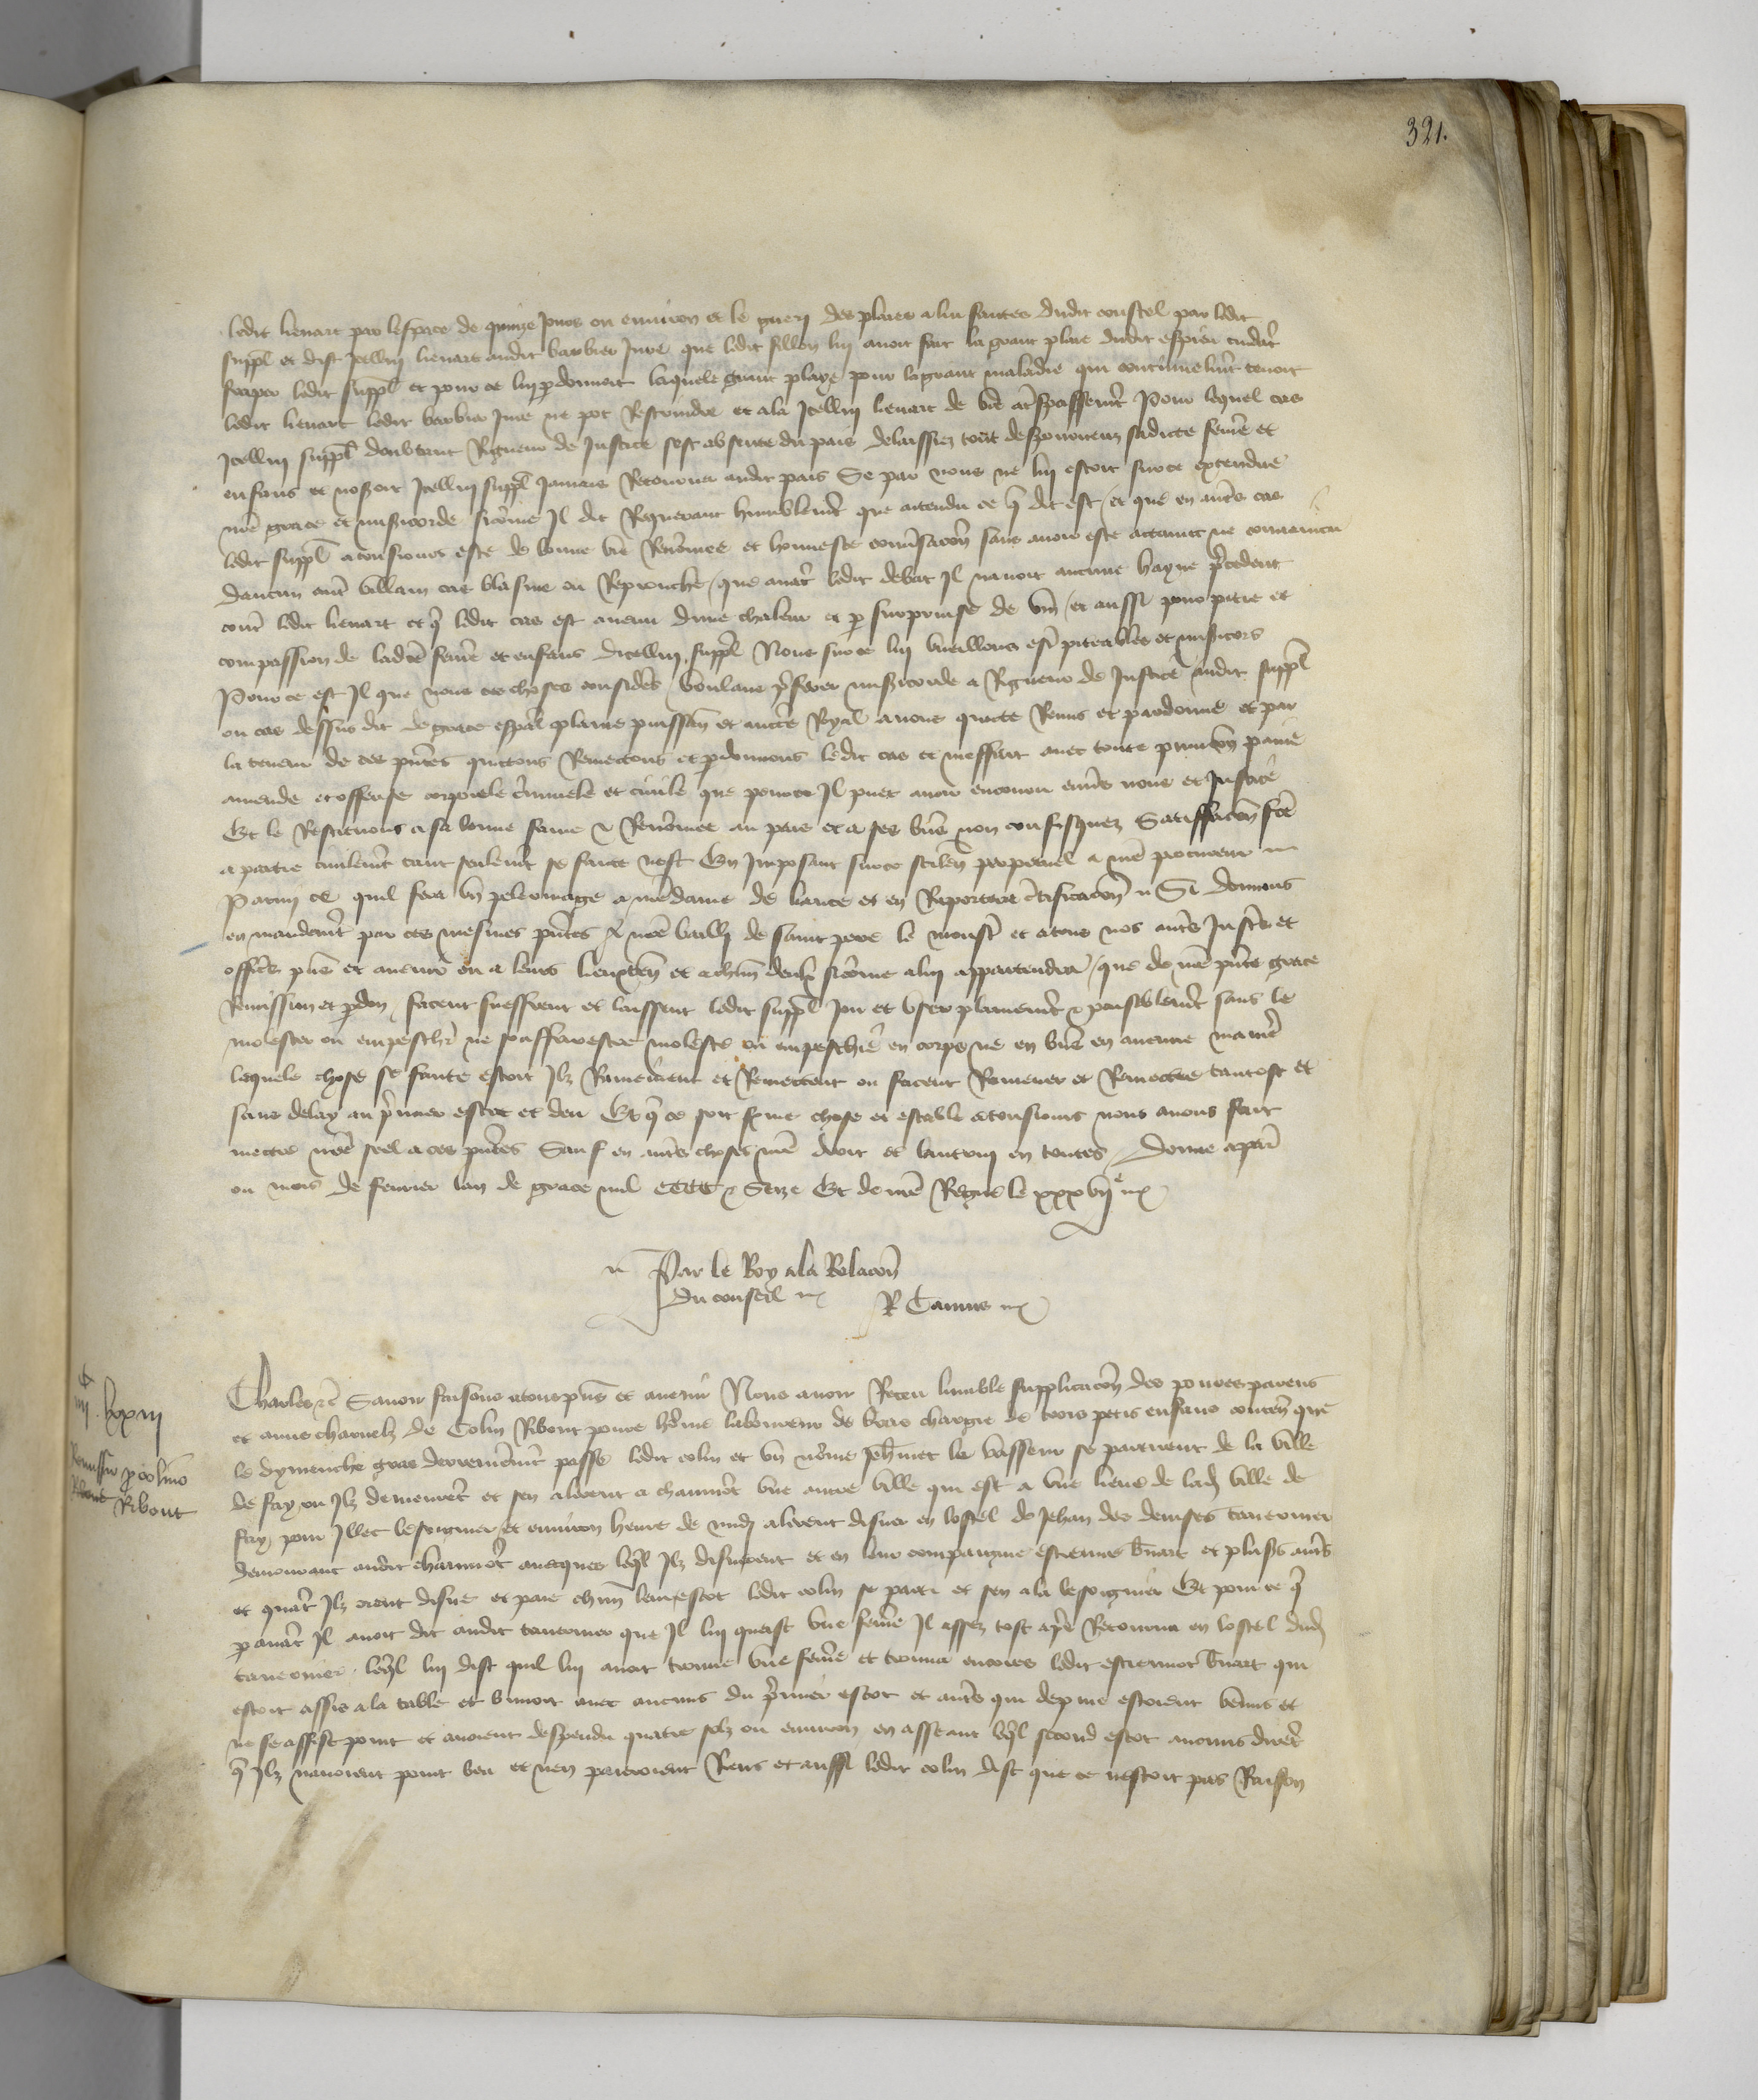 321.
ledit lienart par lespace de quinze jours ou environ et le guery des plaies a lui faictes dudit coustel par ledit
suppl et dist icellui lienart audit barbier jure que ledit fillon lui avoit fait la grant plaie dudit espieu cudāt
frapper ledit suppl et pour ce lui pdonnoit laquele grant playe pour la grant maladie qui continuelmēt tenoit
ledit lienart ledit barbier jure ne pot restraindre et ala icellui lienart de vie a trespassemēt Pour lequel cas
icellui suppl doubtant rigueur de justice sest absente du pais delaissiez tout desporveuz sadicte feme et
enfans et noseroit icellui suppl jamais retourner audit pais Se par nous ne lui estoit sur ce extendue
nre grace et misericorde sicōme il dit requerant humblemēt que attendu ce q dit est / et que en autres cas
ledit suppl a tousiours este de bonne vie renōmee et honneste conversacōn sans avoir este attaint ne convaincu
daucun autre villain cas blasme ou reprouche / que avāt ledit debat il navoit aucune hayne precedent
contre ledit lienart et q ledit cas est avenu dune chaleur et p surprinse de vin / et aussi pour pitie et
compassion de ladicte feme et enfans dicellui suppl Nous sur ce lui vueillons estre piteables et misericors
Pour ce est il que nous ces choses considērs voulans pferer misericorde a rigueur de justice audit suppl
ou cas dessus dit de grace espāl plaine puissāce et auctē royal avons quicte remis et pardonne et par
la teneur de ces pntes quictons remectons et pdonnons ledit cas et meffait avec toute peine
amende et offense corporele criminele et civile que pour ce il puet avoir encouru envers nous et justice
Et le restituons a sa bonne fame & renōmee au pais et a ses biens non confisquez Satisfacōn fcē
a partie civilemēt tant seulemēt se faicte nest En imposant sur ce scilence perpetuel a nre procureur
Parmy ce quil fera un pelerinage a nre dame de liance et en reportera certificacōn Si donnons
en mandemēt par ces mesmes pntes A nre bailli de saint pere le moustr et a tous nos autres justic et
officers pns et avenir ou a leurs lieuxten et a chun deulx sicōme a lui appartendra / que de nre pnte grace
remission et pdon facent sueffrent et laissent ledit suppl joir et user plainemēt & paisiblemēt sans le
molester ou empescher ne souffrir estre moleste ou empeschie en corps ne en biens en aucune maniē
laquele chose se faicte estoit ilz ramenent et remectent ou facent ramener et remectre tantost et
sans delay au premier estat et deu Et q ce soit ferme chose et estable a tousiours nous avons fait
mectre nre seel a ces pntes Sauf en autres choses nre droit et lautruy en toutes Donne a paris
ou mois de fevrier lan de grace mil CCCC & Seze Et de nre Regne le xxxvije
Par le Roy a la Relacōn
du conseil R Camus
Charles &c Savoir faisons a tous pns et avenir Nous avoir receu lumble supplicacōn des povres parens
et amis charnelz de Colin Ribout povre hōme laboureur de bras chargie de trois petis enfans conten que
le dymenche gras derreinemēt passe ledit colin et un nōme Jehannet le vasseur se partirent de la ville
de fay ou ilz demeurēt et sen alerent a chaumōt une autre ville qui est a une lieue de lad ville de
fay pour illec besoigner / et environ heure de midj alerent disner en lostel de Jehan des denises tavernier
demourant audit chaumōt avecques leql ilz disnerent et en leur compaignie estienne bnart et plus autres
et quāt ilz orent disne et paie chun leur escot ledit colin se parti et sen ala besoigner Et pour ce q
p avāt il avoit dit audit tavernier que il lui queist une feme il assez tost apres retourna en lostel dud
tavernier leql lui dist quil lui avoit trouve une feme et trouva encores ledit estiennot bnart qui
estoit assis a la table et buvoit avec aucuns du premier escot et autres qui depuis estoient venus et
ne se assist point et avoient despendu quatre solz ou environ en asseant leql second escot aucuns dirēt
q ilz navoient point beu et nen paieroient riens et aussi ledit colin dist que ce nestoit pas raison
iiij lxxiij
Remissio p colino
Ribout
Ribout